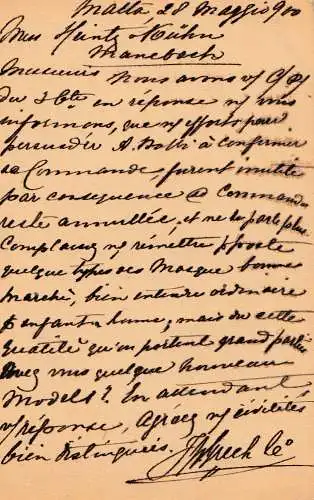 Malta 28 Maggio 900
Mess Heintz & Kühn
Manebach
Messieurs Nous avons v/ C/P/
du 3 Cte en réponse n/ vous
informons, que n/ efforts pour
persuader A. Bolli à confirmer
sa Commande, furent inutile
par consequence @ Commande
reste annullée. et ne la parle plus
n/ remettre p poste
quelque types des Masque bonne
marché, bien entendu ordinaire
p enfant & home; mais du cette
qualité qu'on portent grand parti
Avez vous quelque nouveau
Models? En attendant
v/ réponse, Agréez n/ civilités
bien distinguées.